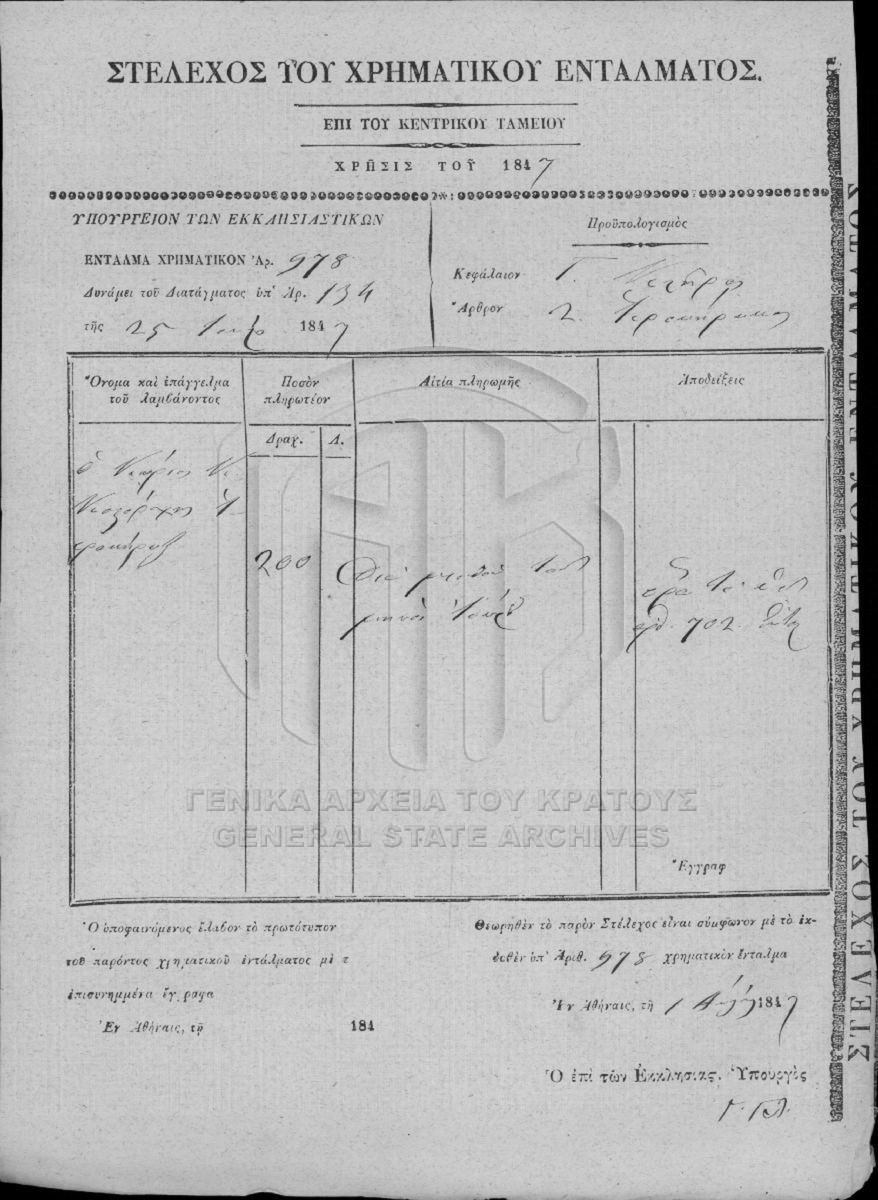 ΣΤΕΛΕΧΟΣ ΤΟΥ ΧΡΗΜΑΤΙΚΟΥ ΕΝΤΑΛΜΑΤΟΣ.
ΕΠΙ ΤΟΥ ΚΕΝΤΡΙΚΟΥ ΤΑΜΕΙΟΥ
ΧΡΗΣΙΣ ΤΟΥ 1847
ΥΠΟΥΡΓΕΙΟΝ ΤΩΝ ΕΚΚΛΗΣΙΑΣΤΙΚΩΝ
ΕΝΤΑΛΜΑ ΧΡΗΜΑΤΙΚΟΝ Ἀρ. 978
Δυνάμει τοῦ Διατάγματος ὑπ' Ἀρ. 134
τῆς 25 1847
Προϋπολογισμὸς
Κεφάλαιον Γ.
Ἄρθρον 2.
Ὄνομα καὶ ἐπάγγελμα τοῦ λαμβάνοντος
Ποσὸν πληρωτέον
Αἰτία πληρωμῆς
Ἀποδείξεις
Δραχ.
Λ.
ὁ
200
Διὰ μισθὸν τοῦ
μηνὸς
702.
ΓΕΝΙΚΑ ΑΡΧΕΙΑ ΤΟΥ ΚΡΑΤΟΥΣ
GENERAL STATE ARCHIVES
Ἔγγραφ
Ὁ ὑποφαινόμενος ἔλαβον τὸ πρωτότυπον
τοῦ παρόντος χρηματικοῦ ἐντάλματος μὲ τ
ἐπισυνημμένα ἔγγραφα
Ἐν Ἀθήναις, τῇ 184
Θεωρηθὲν τὸ παρὸν Στέλεχος εἶναι σύμφωνον μὲ τὸ ἐκ-
δοθὲν ὑπ' Ἀριθ. 978 χρηματικὸν ἔνταλμα
Ἐν Ἀθήναις, τῇ 1 1847
Ὁ ἐπὶ τῶν Ἐκκλησιας. Ὑπουργὸς
ΣΤΕΛΕΧΟΣ ΤΟΥ ΧΡΗΜΑΤΙΚΟΥ ΕΝΤΑΛΜΑΤΟΣ